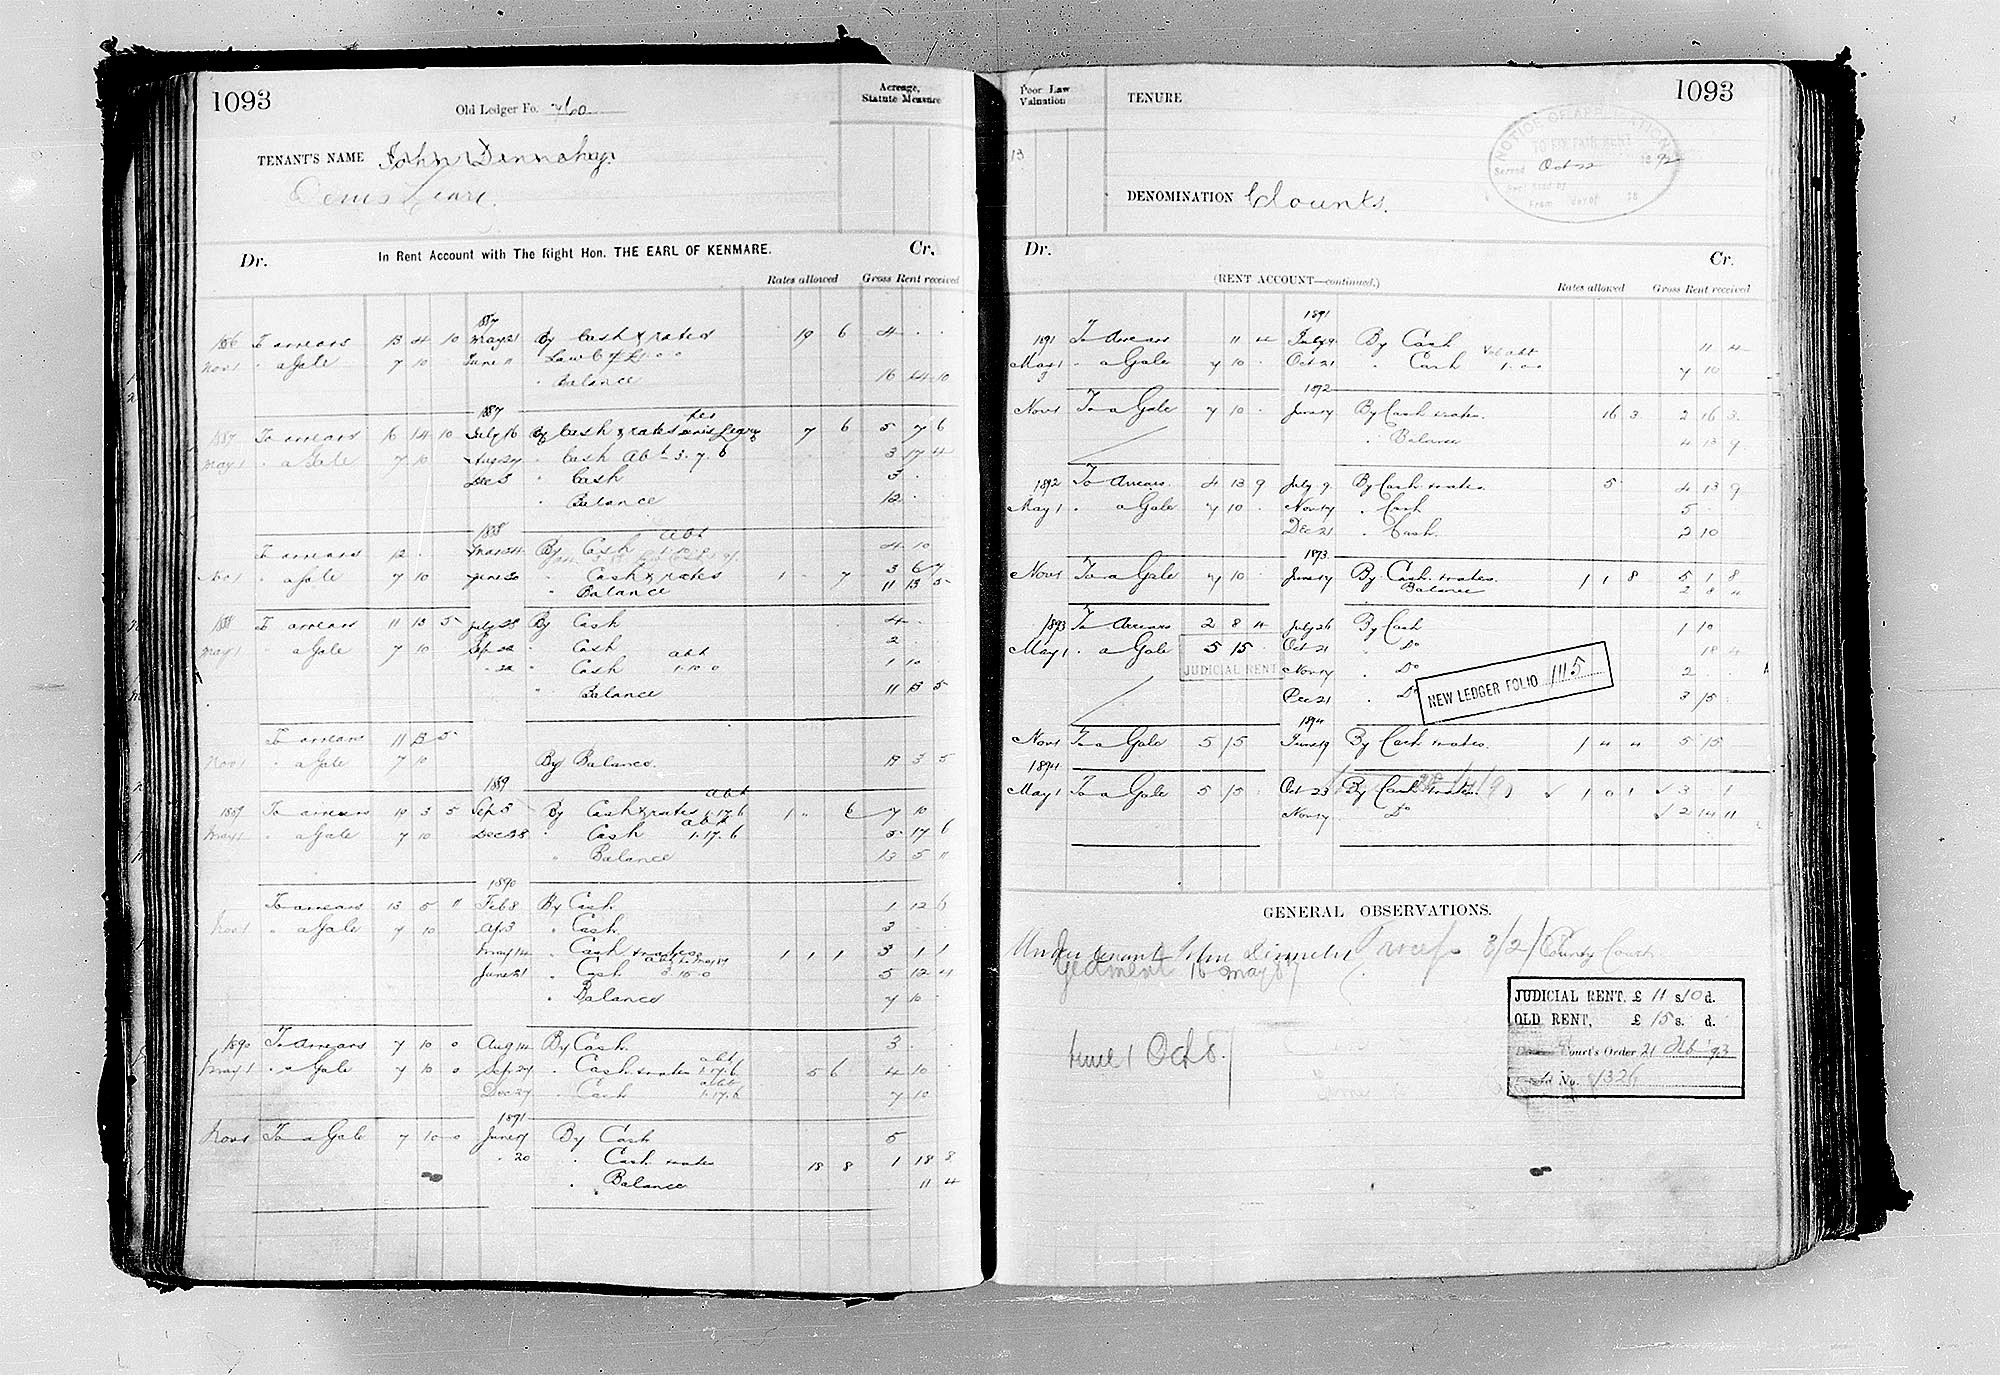 1093
Old Ledger Fo. 760
Acreage,
Statute Measure
TENANT'S NAME John Dennahy.
Denis Leary.
Dr. In Rent Account with The Right Hon. THE EARL OF KENMARE. Cr.
Rates allowed Gross Rent received
1887
1886 To arrears 13 4 10 May 21 By Cash & rates 19 6 4 . .
Nov 1 " a Gale 7 10 June 11
" Balance 16 14 10
1887
1887 To arrears 16 14 10 July 16 By Cash & rates Denis Leary 7 6 5 7 6
May 1 " a Gale 7 10 Aug 27 " Cash Abt 3.7.6 3 17 4
Dec 3 " Cash 3 .
" Balance 12 .
1888
To arrears 12 . Mar 24 By Cash abt 1.10.0 4 10
Nov 1 " a Gale 7 10 June 30 " Cash & rates 1 - 7 3 6 7
" Balance 11 13 5
1888 To arrears 11 13 5 July 28 By Cash 4 -
May 1 " a Gale 7 10 Sep 22 " Cash 2
" 22 " Cash abt 1.10.0 1 10
" Balance 11 13 5
To arrears 11 13 5
Nov 1 " a Gale 7 10 By Balance 19 3 5
1889
1889 To arrears 19 3 5 Sep 5 By Cash & rates abt 1.17.6 1 " 6 7 10
May 1 " a Gale 7 10 Dec 28 " Cash abt 1.17.6 5 17 6
" Balance 13 5 11
1890
To arrears 13 5 11 Feb 8 By Cash 1 12 6
Nov 1 " a Gale 7 10 Ap 3 " Cash 3
May 14 " Cash & rates 1 1 1 3 1 1
June 21 " Cash 3.15.0 5 12 4
" Balance 7 10
1890 To Arrears 7 10 0 Aug 14 By Cash 3 .
May 1 " a Gale 7 10 0 Sep 27 " Cash & rates abt 1.17.6 5 6 4 10
Dec 27 " Cash abt 1.17.6 7 10
1891
Nov 1 To a Gale 7 10 0 June 17 By Cash 5
" 20 " Cash & rates 18 8 1 18 8
" Balance 11 4
Poor Law
Valuation
TENURE
1093
13
NOTICE OF APPLICATION
TO FIX FAIR RENT
Served Oct 22 1892
Received by
From Day of 18
DENOMINATION Clounts.
Dr. Cr.
(RENT ACCOUNT—continued.)
Rates allowed Gross Rent received
1891
1891 To Arrears 11 4 July 4 By Cash 11 4
May 1 " a Gale 7 10 Oct 21 " Cash Vol abt 1.0.0 7 10
1892
Nov 1 To a Gale 7 10 June 17 By Cash & rates. 16 3 2 16 3
" Balance 4 13 9
1892 To Arrears 4 13 9 July 9 By Cash & rates. 5 4 13 9
May 1 " a Gale 7 10 Nov 17 " Cash 5
Dec 21 " Cash. 2 10
1893
Nov 1 To a Gale 7 10 June 17 By Cash & rates. 1 1 8 5 1 8
Balance 2 8 4
1893 To Arrears 2 8 4 July 26 By Cash 1 10
May 1 " a Gale 5 15 Oct 21 " Do 18 4
JUDICIAL RENT
Nov 17 " Do 2
Dec 21 " Do 3 15
NEW LEDGER FOLIO 1115
1894
Nov 1 To a Gale 5 15 June 19 By Cash & rates. 1 4 4 5 15
1894
May 1 To a Gale 5 15 Oct 23 By Cash & rates 1 0 1 3 1
Nov 17 Do 2 14 11
GENERAL OBSERVATIONS.
Under tenant John Dinneen Process 3/2/ County Court
16 May 87
time 1 Oct 8.
JUDICIAL RENT, £ 11 s. 10 d.
OLD RENT, £ 15 s. d.
Court's Order 21 Feb '93
No. 1326